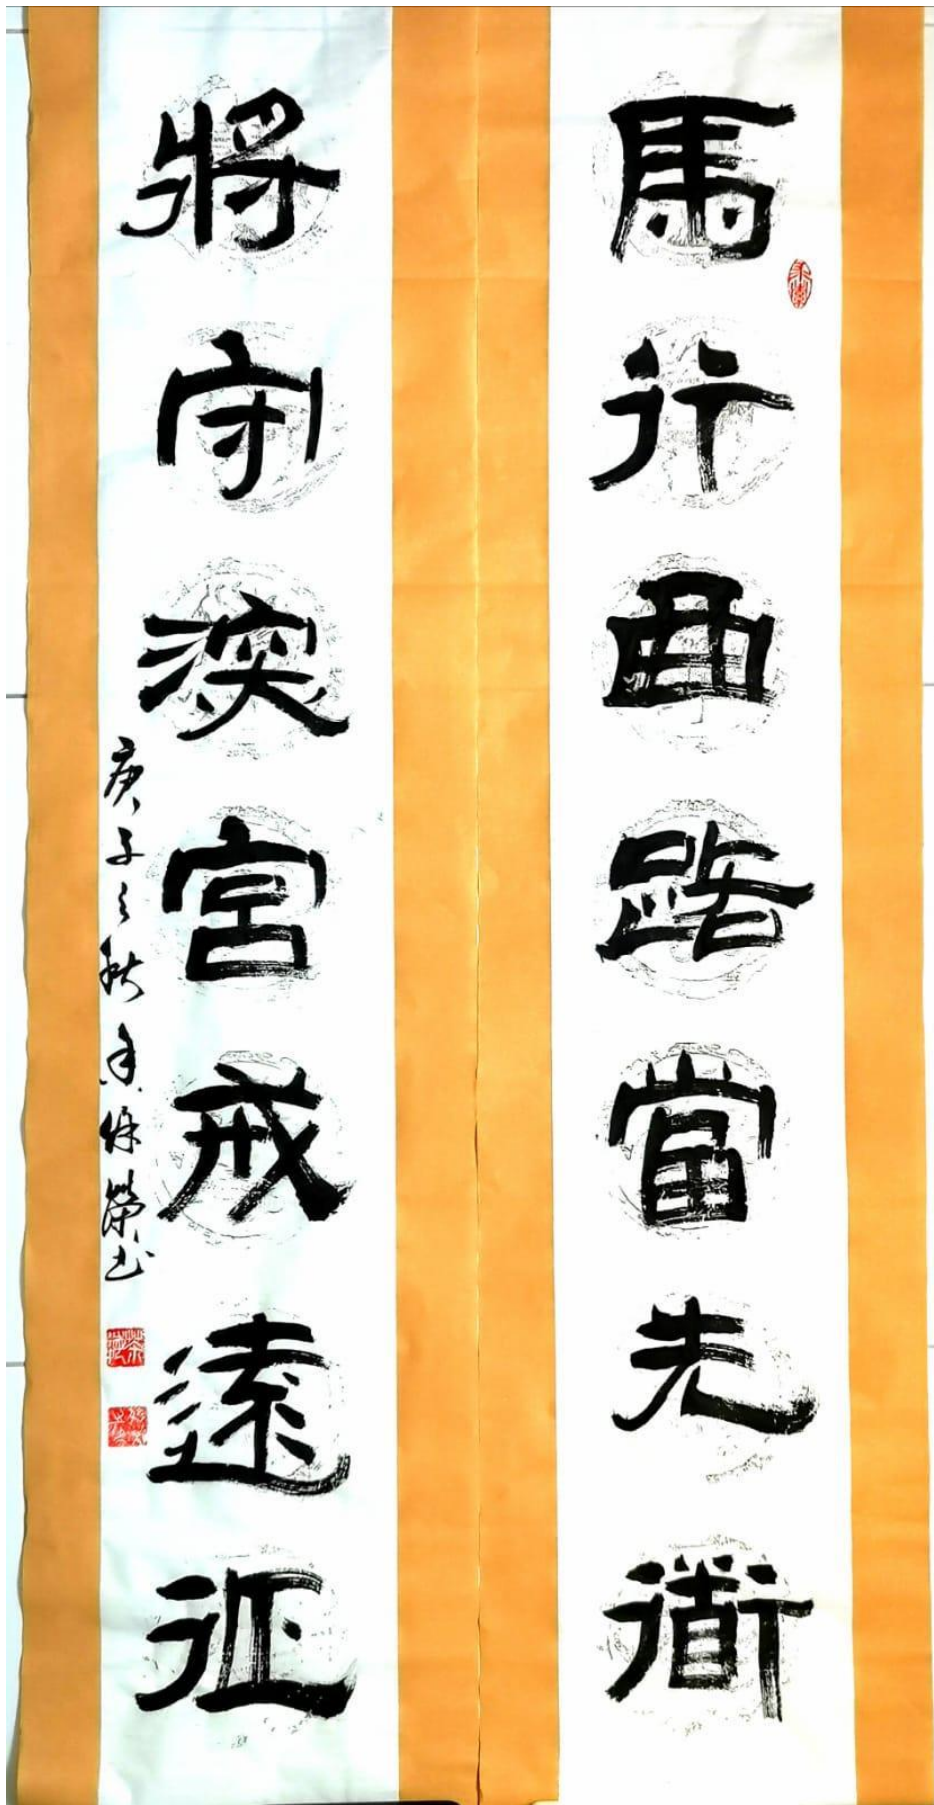 馬行曲路當先衜
將守深宮戒遠征
庚子之秋保榮書